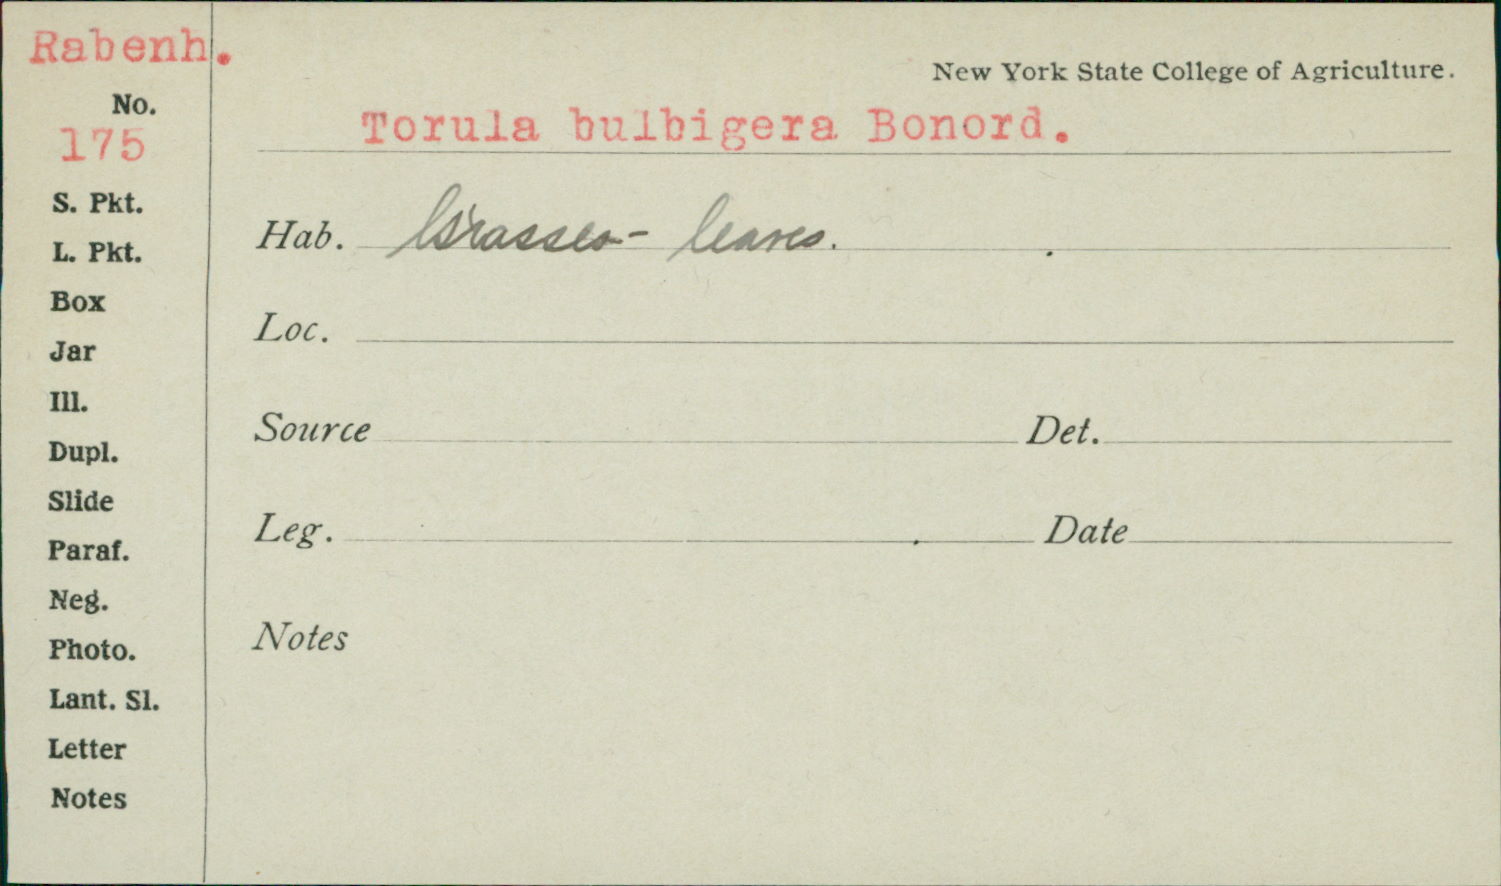 Rabenh.
New York State College of Agriculture.
No.
175
Torula bulbigera Bonord.
S. Pkt.
Hab. Grasses - leaves.
L. Pkt.
Box
Loc.
Jar
Ill.
Source Det.
Dupl.
Slide
Leg. Date
Paraf.
Neg.
Notes
Photo.
Lant. Sl.
Letter
Notes